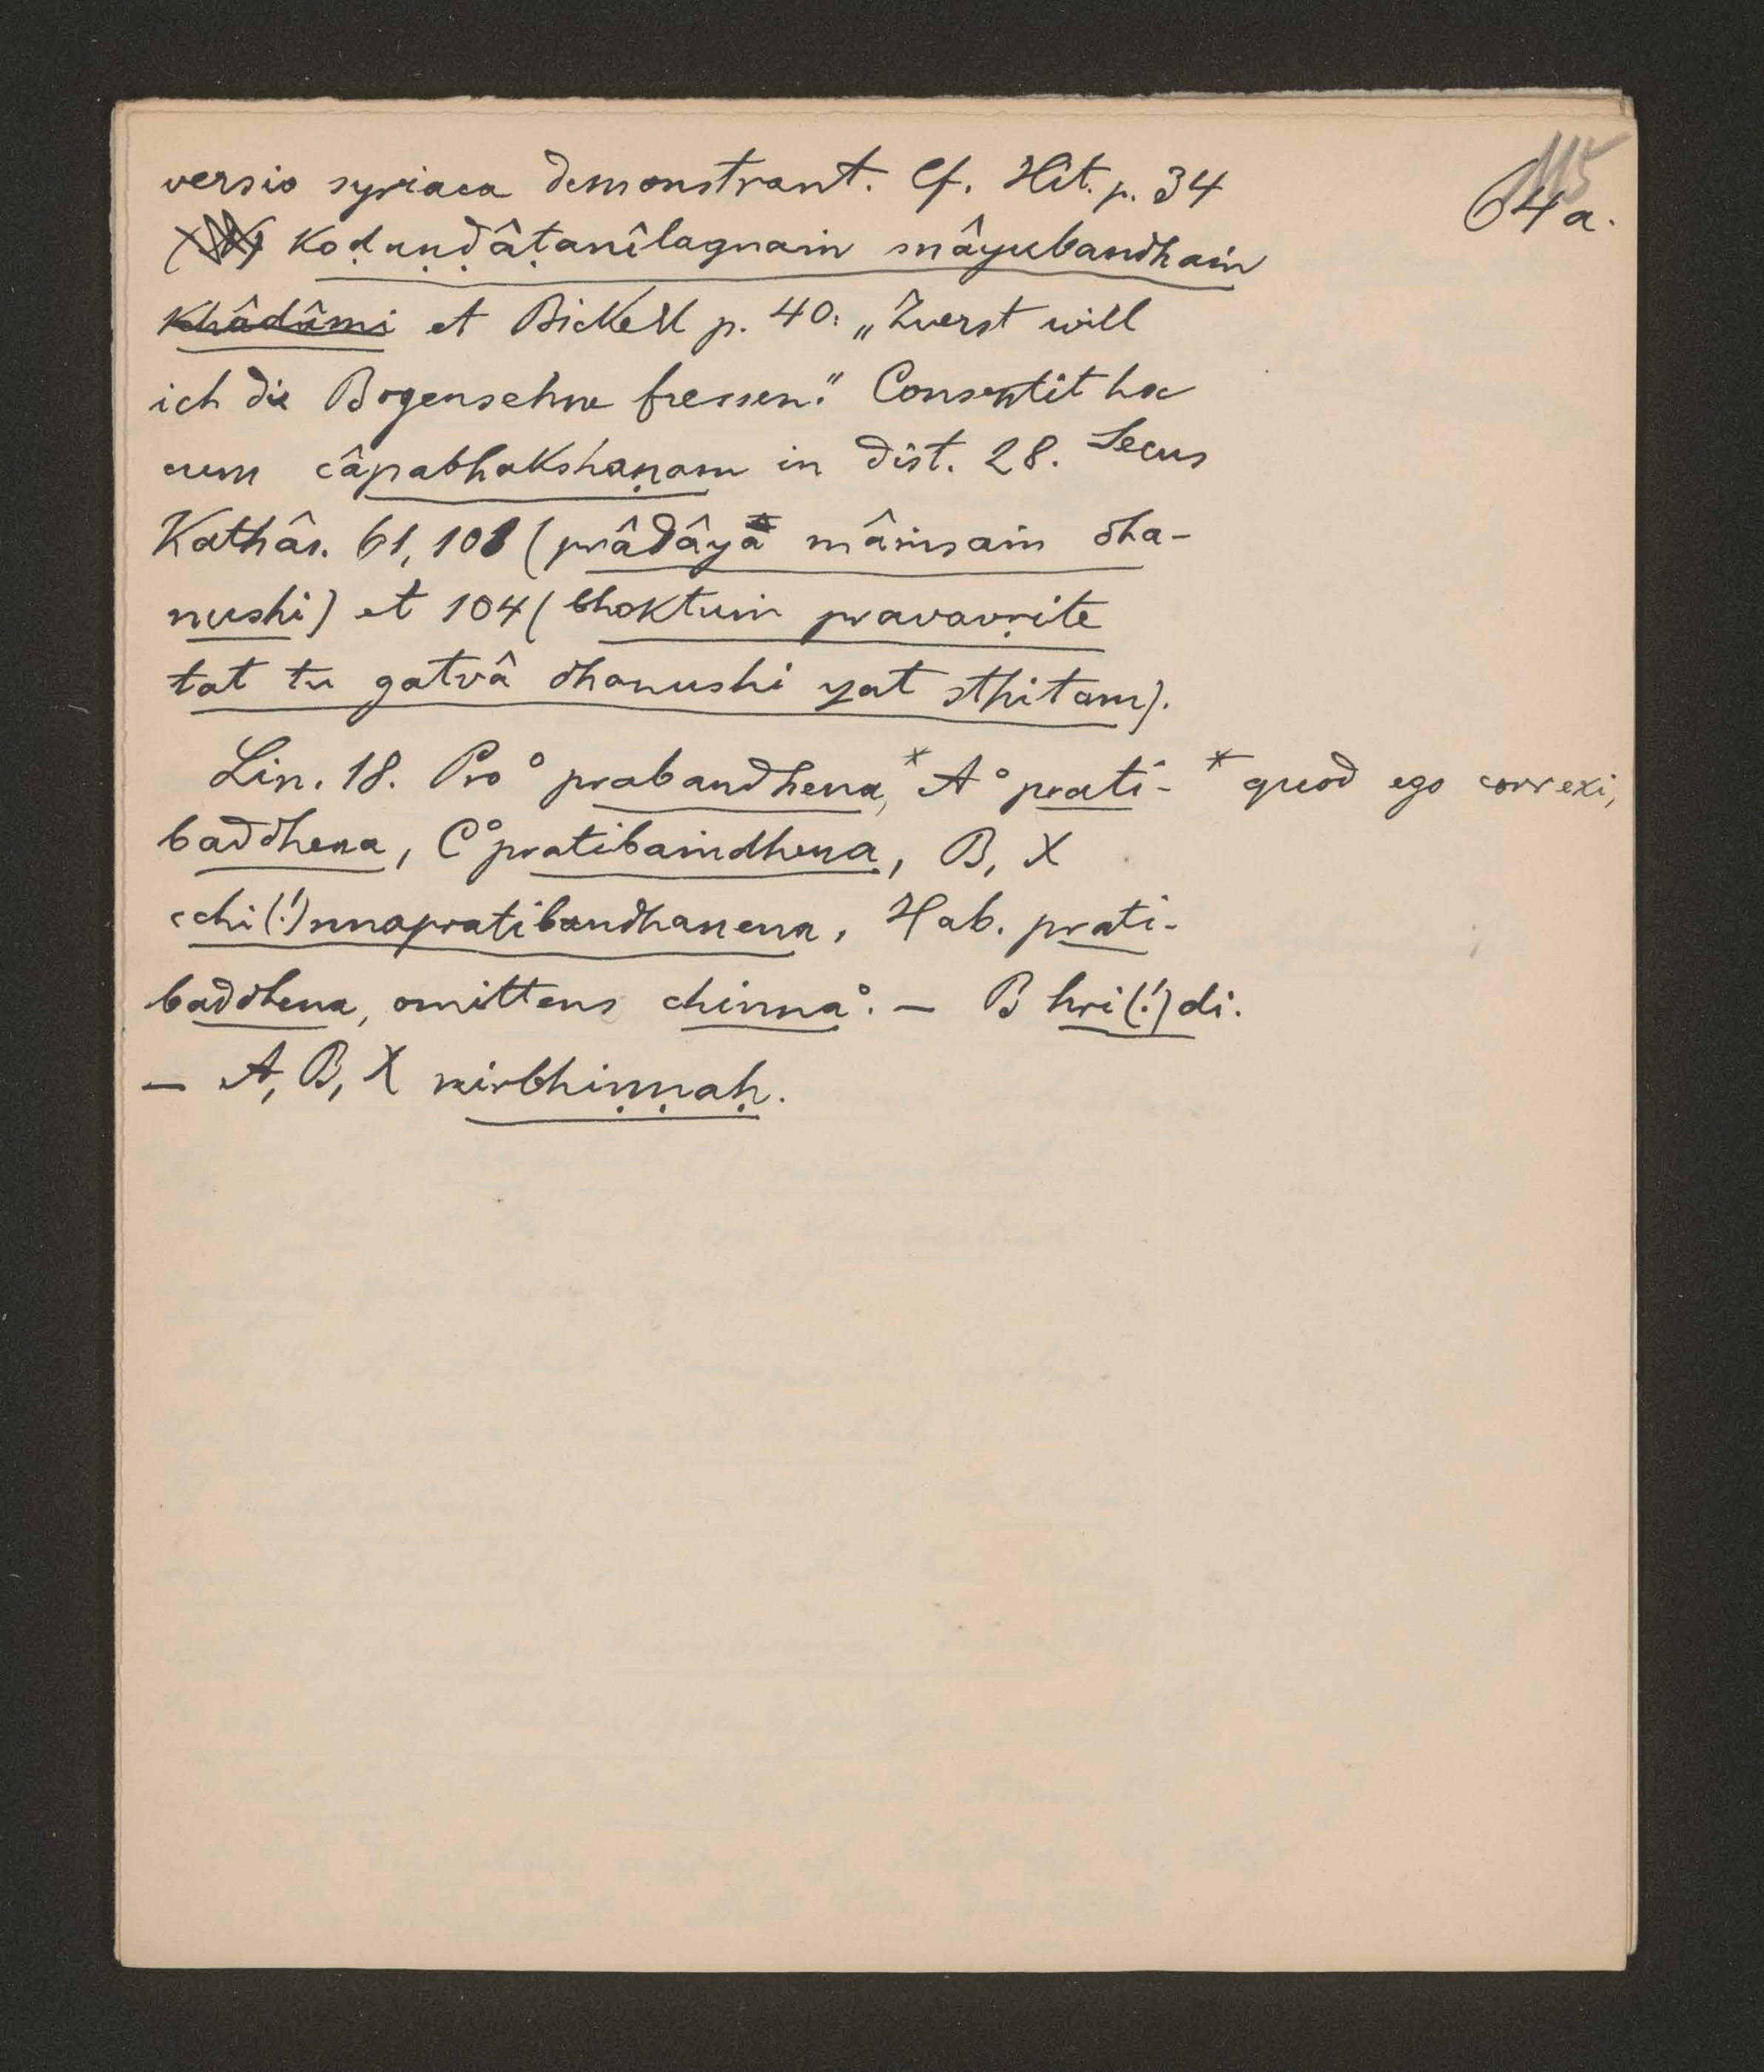 115
64a.
versio syriaca demonstrant. Cf. Hit. p. 34
koḍaṇḍâṭanîlagnaṁ snâyubandhaṁ
khâdâmi et Bickell p. 40: „Zuerst will
ich die Bogensehne fressen.“ Consentit hoc
cum câpabhakshaṇam in dist. 28. Secus
Kathâs. 61, 103 (prâdâya mâṁsaṁ dha-
nushi) et 104 (bhoktuṁ pravavṛite
tat tu gatvâ dhanushi yat sthitam).
Lin. 18. Pro °prabandhena,* A °prati- * quod ego correxi,
baddhena, C °pratibaṁdhena, B, X
cchi(!)nnapratibandhanena, Hab. prati-
baddhena, omittens chinna°. — B hri(!)di.
— A, B, X nirbhiṇṇaḥ.